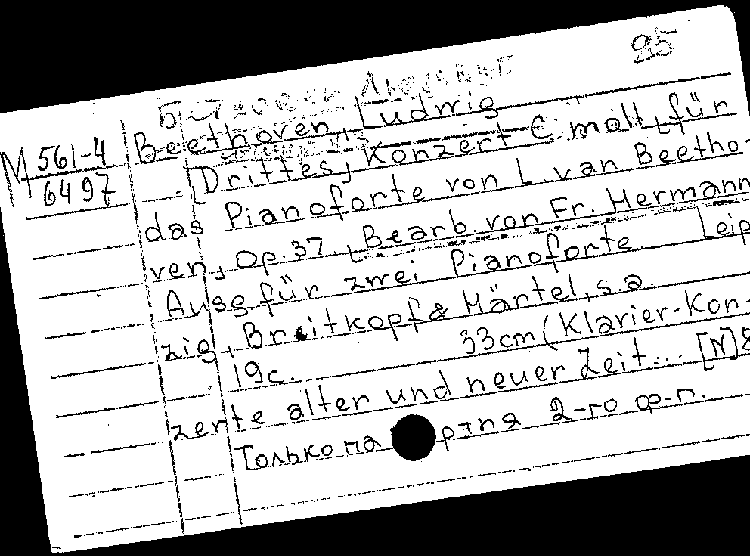 95
Бетховен Людвиг
M 561-4
6497
Beethoven, Ludwig
[Drittes] Konzert C moll, für
das Pianoforte von L. van Beetho-
ven, Op. 37. Bearb von Fr. Hermann
Ausg für zwei Pianoforte. Leip
zig, Breitkopf & Härtel, s.a.
19c. 33cm (Klavier-Kon-
zerte alter und neuer Zeit... [N]8
Только па ртия 2-го ф-п.